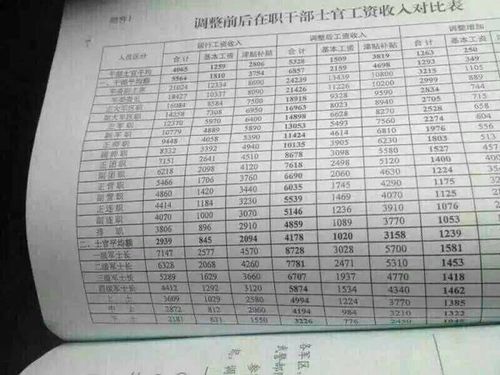 附件1
调整前后在职干部士官工资收入对比表
人员区分 现行工资收入 调整后工资收入 调整增加
合计 基本工资 津贴补贴 合计 基本工资 津贴补贴 合计 基本工资
干部士官平均 4065 1259 2806 5328 1509 3819 1263 250
5564 1810 3754 6857 2159 4698 1293 349
21024 12334 8690 24239 13439 10800 3215 1105
18427 10337 8090 21426 11226 10200 2999 889
16084 8584 7500 18918 9328 9590 2834 744
14258 7308 6950 16963 8023 8940 2705 715
正军职 12370 5970 6400 14898 6628 8270 2528 658
副军职 10779 4889 5890 13053 5493 7560 2274 604
正师职 9448 4058 5390 11424 4614 6810 1976 556
副师职 8332 3392 4940 10135 3905 6230 1803 513
正团职 7151 2641 4510 8678 3098 5580 1527 457
副团职 6218 2098 4120 7618 2498 5120 1400 400
正营职 5466 1706 3760 6690 2060 4630 1224
副营职 4860 1420 3440 6035 1745 4290 1175
正连职 4414 1184 3230 5539 1469 4070 1125
副连职 4070 1000 3070 5146 1236 3910 1076
排职 3806 896 2910 4859 1089 3770 1053
二、士官平均额 2939 845 2094 4178 1020 3158 1239
一级军士长 7147 2577 4570 8728 3028 5700 1581
二级军士长 6328 2068 4260 7781 2471 5310 1453
三级军士长 5289 1629 3660 6707 1937 4770 1418
四级军士长 4412 1292 3120 5874 1534 4340 1462
上士 3609 1029 2580 4994 1224 3770 1385
中士 2872 812 2060 4194 984 3210 1322
下士 2181 631 1550 3226 776 2450
各军区、